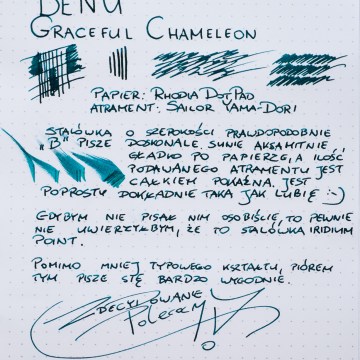 BENU
GRACEFUL CHAMELEON
PAPIER: RHODIA DOT PAD
ATRAMENT: SAILOR YAMA-DORI
STALÓWKA O SZEROKOŚCI PRAWDOPODOBNIE
„B" PISZE DOSKONALE. SUNIE AKSAMITNIE,
GŁADKO PO PAPIERZE, A ILOŚĆ
PODAWANEGO ATRAMENTU JEST
CAŁKIEM POKAŹNA. JEST
POPROSTU DOKŁADNIE TAKA JAK LUBIĘ :-)
GDYBYM NIE PISAŁ NIM OSOBIŚCIE, TO PEWNIE
NIE UWIERZYŁBYM, ŻE TO STALÓWKA IRIDIUM
POINT.
POMIMO MNIEJ TYPOWEGO KSZTAŁTU, PIÓREM
TYM PISZE SIĘ BARDZO WYGODNIE.
ZDECYDOWANIE
POLECAM!